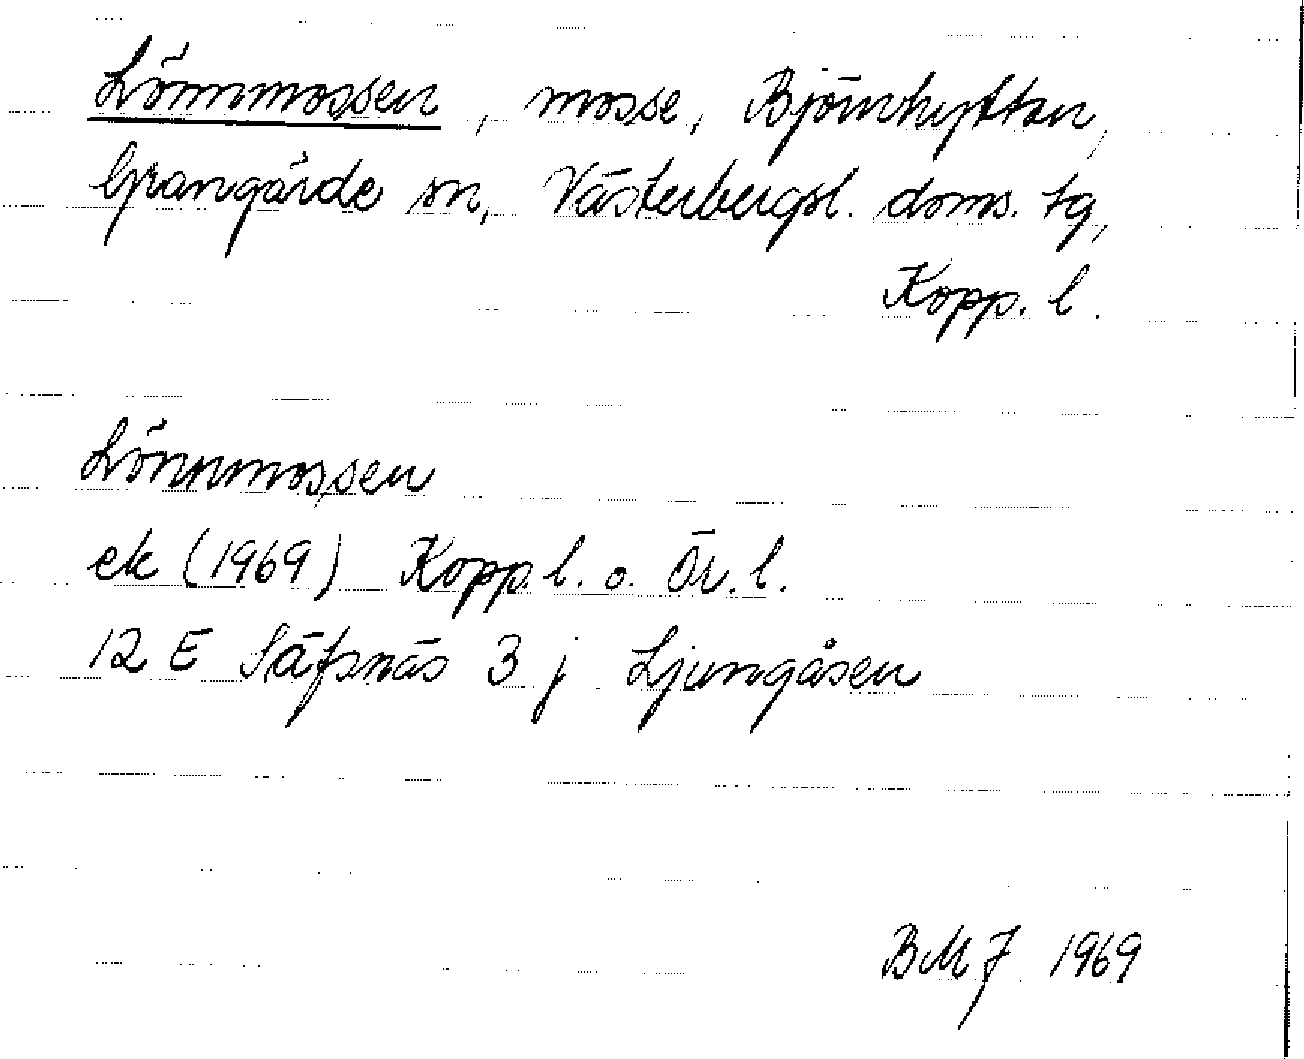 Lönnmossen, mosse, Björnhyttan,
Grangärde sn, Västerbergsl. doms. tg,
Kopp. l.
Lönnmossen
ek (1969) Kopp. l. o. Ör. l.
12 E Säfsnäs 3 j Ljungåsen
BMJ 1969